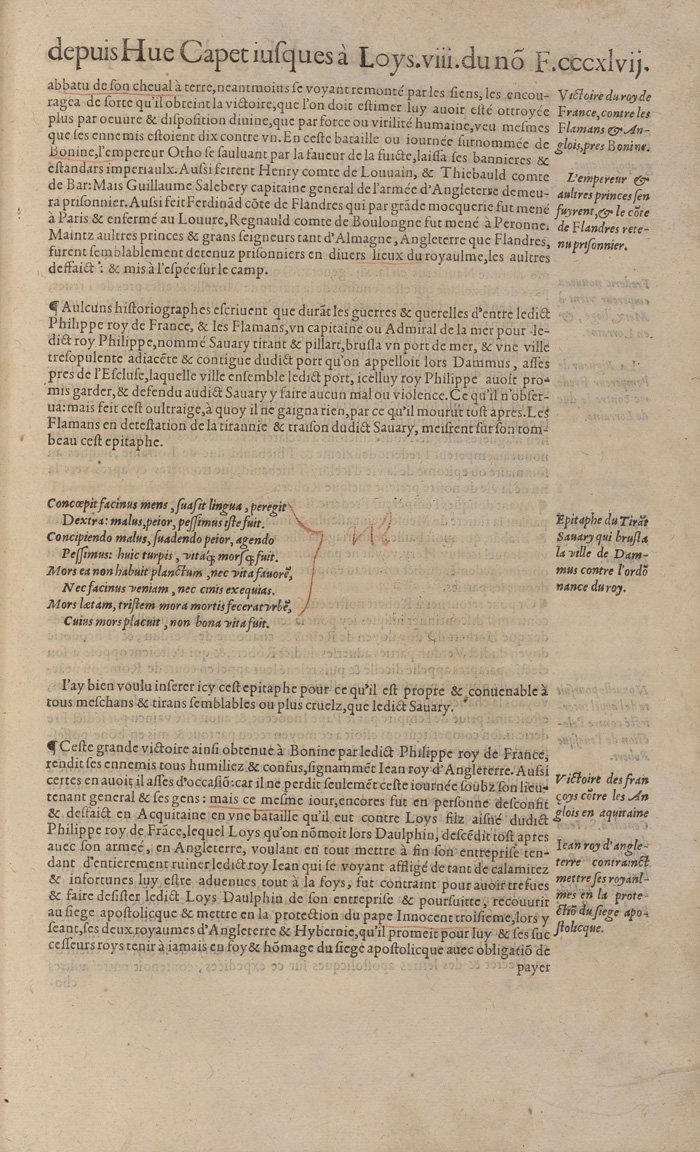 depuis Hue Capet iuſques à Loys.viii.du nõ F.cccxlvij.
abbatu de ſon cheual à terre, neantmoins ſe voyant remonté par les ſiens, les encou-
ragea de ſorte qu'il obteint la victoire, que l'on doit eſtimer luy auoir eſté ottroyée
plus par oeuure & diſpoſition diuine, que par force ou virilité humaine, veu meſmes
que ſes ennemis eſtoient dix contre vn. En ceſte bataille ou iournée ſurnommée de
Bonine, l'empereur Otho ſe ſauluant par la faueur de la fuicte, laiſſa ſes bannieres &
eſtandars imperiaulx. Auſſi feirent Henry comte de Louuain, & Thiebauld comte
de Bar: Mais Guillaume Salebery capitaine general de l'armée d'Angleterre demeu-
ra priſonnier. Auſſi feit Ferdinãd cõte de Flandres qui par grãde mocquerie fut mené
à Paris & enfermé au Louure, Regnauld comte de Boulongne fut mené à Peronne.
Maintz aultres princes & grans ſeigneurs tant d'Almagne, Angleterre que Flandres,
furent ſemblablement detenuz priſonniers en diuers lieux du royaulme, les aultres
deffaictz & mis à l'eſpée ſur le camp.
Victoire du roy de
France, contre les
Flamans & An-
glois, pres Bonine.
L'empereur &
aultres princes ſen
fuyrent, & le cõte
de Flandres rete-
nu priſonnier.
¶ Aulcuns hiſtoriographes eſcriuent que durãt les guerres & querelles d'entre ledict
Philippe roy de France, & les Flamans, vn capitaine ou Admiral de la mer pour le-
dict roy Philippe, nommé Sauary tirant & pillart, bruſla vn port de mer, & vne ville
treſopulente adiacẽte & contigue dudict port qu'on appelloit lors Dammus, aſſes
pres de l'Eſcluſe, laquelle ville enſemble ledict port, icelluy roy Philippe auoit pro-
mis garder, & defendu audict Sauary y faire aucun mal ou violence. Ce qu'il n'obſer-
ua: mais feit ceſt oultraige, à quoy il ne gaigna rien, par ce qu'il mourut toſt apres. Les
Flamans en deteſtation de la tirannie & traiſon dudict Sauary, meiſrent ſur ſon tom-
beau ceſt epitaphe.
Concœpit facinus mens, ſuaſit lingua, peregit
Dextra: malus, peior, peſſimus iſte fuit.
Concipiendo malus, ſuadendo peior, agendo
Peſſimus: huic turpis, vitaq; morſq; fuit.
Mors ea non habuit planctum, nec vita fauorẽ,
Nec facinus veniam, nec cinis exequias.
Mors lætam, triſtem mora mortis fecerat vrbẽ,
Cuius mors placuit, non bona vita fuit.
Epitaphe du Tirãt
Sauary qui bruſla
la ville de Dam-
mus contre l'ordõ
nance du roy.
I'ay bien voulu inſerer icy ceſt epitaphe pour ce qu'il eſt propre & conuenable à
tous meſchans & tirans ſemblables ou plus cruelz, que ledict Sauary.
¶ Ceſte grande victoire ainſi obtenue à Bonine par ledict Philippe roy de France,
rendit ſes ennemis tous humiliez & confus, ſignammẽt Iean roy d'Angleterre. Auſſi
certes en auoit il aſſes d'occaſiõ: car il ne perdit ſeulemẽt ceſte iournée ſoubz ſon lieu-
tenant general & ſes gens: mais ce meſme iour, encores fut en perſonne desconfit
& deffaict en Acquitaine en vne bataille qu'il eut contre Loys filz aiſné dudict
Philippe roy de Frãce, lequel Loys qu'on nõmoit lors Daulphin, deſcẽdit toſt apres
auec ſon armeé, en Angleterre, voulant en tout mettre à fin ſon entreprise ten-
dant d'entierement ruiner ledict roy Iean qui ſe voyant affligé de tant de calamitez
& infortunes luy eſtre aduenues tout à la foys, fut contraint pour auoir trefues
& faire deſiſter ledict Loys Daulphin de ſon entrepriſe & pourſuitte, recourir
au ſiege apoſtolicque & mettre en la protection du pape Innocent troiſieme, lors y
ſeant, ſes deux royaumes d'Angleterre & Hybernie, qu'il promeit pour luy & ſes ſuc
ceſſeurs roys tenir à iamais en foy & hõmage du ſiege apoſtolicque auec obligatiõ de
payer
Victoire des fran
çoys cõtre les An
glois en aquitaine
Iean roy d'angle-
terre contrainct
mettre ſes royaul-
mes en la prote-
ctiõ du ſiege apo-
ſtolicque.